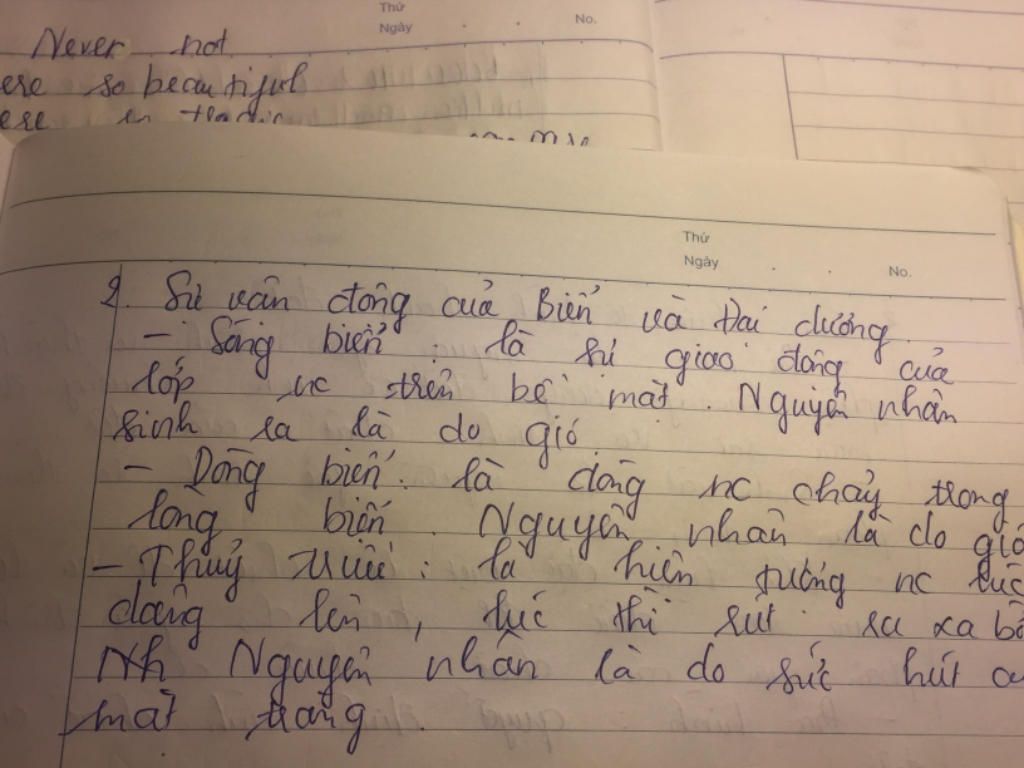 Thứ
Ngày . . No.
Never not
ere so beautiful
ere in the
Thứ
Ngày . . No.
2. Sự vận động của Biển và Đại dương.
- Sóng biển : là sự giao động của
lớp nc trên bề mặt. Nguyên nhân
sinh ra là do gió
- Dòng biển : là dòng nc chảy trong
lòng biển. Nguyên nhân là do gió
- Thuỷ triều : là hiện tượng nc lúc
dâng lên, lúc thì rút ra xa bờ
Nguyên nhân là do sức hút
mặt trăng.